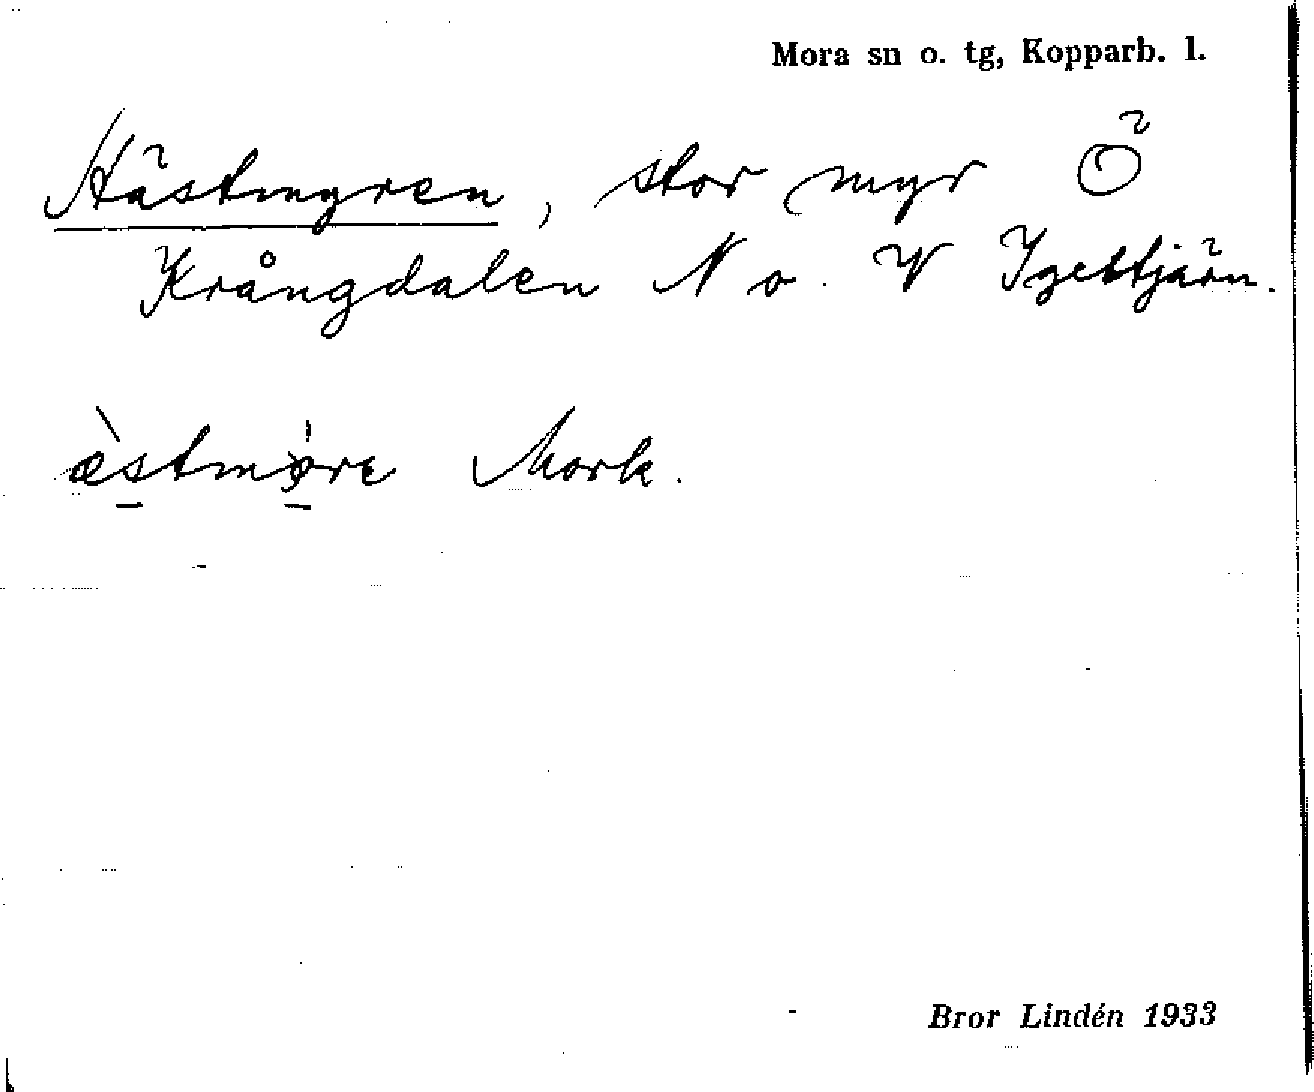 Mora sn o. tg, Kopparb. l.
Hästmyren, stor myr Ö
Krångdalen N o. V Igeltjärn.
æ̀stmy̩re Mork.
Bror Lindén 1933